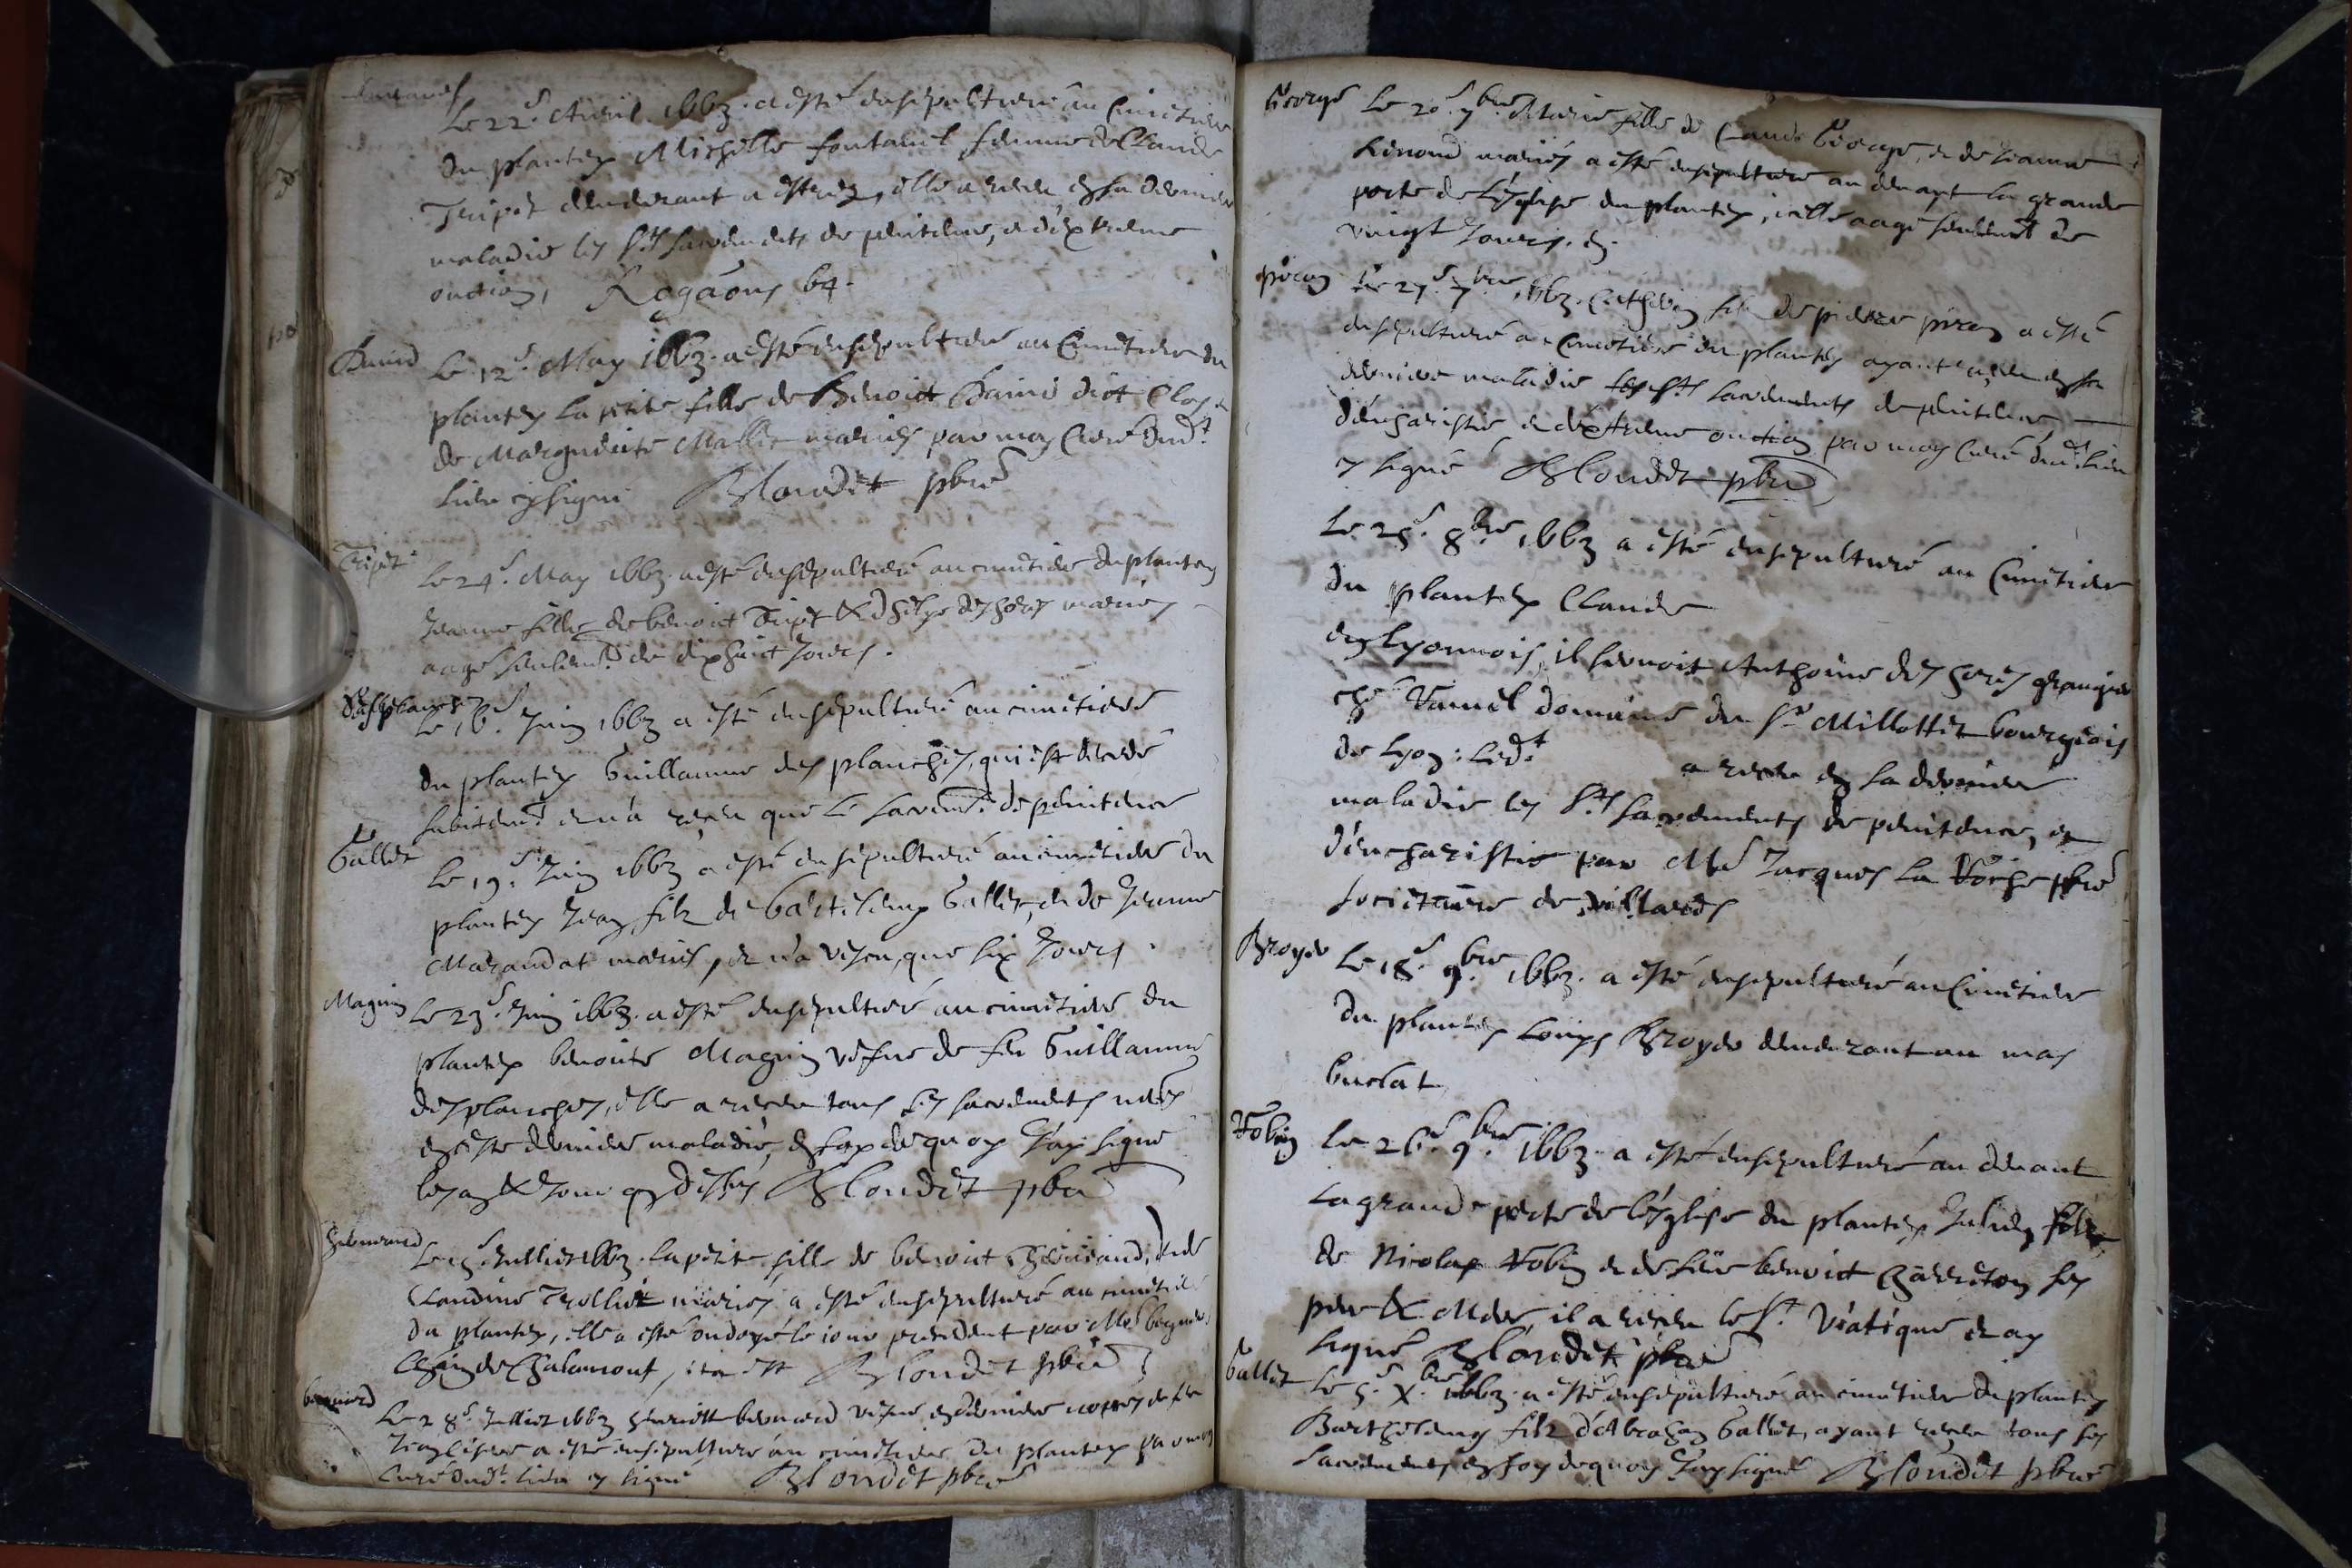 Le 22e. Auril 1663. a esté ensepulturée au Cimetiere
du plantey Michelle fontanel femme de Claude
Tripet demeurant a estrez, elle a receu en sa derniere
maladie les sts sacrements de penitence, et d'extreme
onction,
Le 12e. May 1663. a esté ensepulturée au Cimetiere du
plantey la petite fille de Benoict
de Marguerite Mallet mariés par moy Curé dudt.
lieu cy signé Blondet pbre
Tripet
Le 24e. May 1663. a esté ensepulturée au cimetiere du plantey
Jeanne fille de benoict Tripet & mariés
aagée seulemt. de dixhuict jours.
Desplanches
Le 16e. Juin 1663 a esté ensepulturé au cimetiere
du plantey Guillaume des planches, qui est decedé
subitemt. et n'a receu que le sacremt. de penitence
Gallet
Le 19e. Juin 1663 a esté ensepulturé au cimetiere du
plantey Jean filz de bartelemy Gallet, et de Jeanne
Marandat mariés, et n'a vescu, que six jours.
Magnin
Le 23e. Juin 1663. a esté ensepulturée au cimetiere du
plantey benoite Magnin vefue de feu Guillaume
desplanches, elle a receu tous les sacrements
en ceste derniere maladie, en foy dequoy j'ay signé
les an & jour que dessus Blondet pbre
Le Juillet 1663. la petite fille de benoict et de
Claudine Trolliet mariés a esté ensepulturée au cimetiere
du plantey, elle a esté ondoyée le iour precedent par
de Chalamont, ita est Blondet pbre
bernard
Le 28e. Juillet 1663 bernard vefue en derniere nopces de feu
a esté ensepulturée au cimetiere du plantey par moy
Curé dudt. lieu cy signé Blondet pbre
George
Le 20e. 7bre. Marie fille de Claude George, et de Jeanne
mariés a esté ensepulturée au deuant la grande
porte de l'eglise du plantey, icelle aagée seulemt de
vingt jours.
piron
Le 27e. 7bre. 1663. Catherin filz de pierre piron a esté
ensepulturé au Cimetiere du plantey ayant receu en sa
derniere maladie les sts sacrements de penitence,
d'eucharistie et d'extreme onction par moy Curé dudt. lieu
cy signé Blondet pbre
Le 25e. 8bre 1663 a esté ensepulturé au Cimetiere
du plantey Claude
en Lyonnois, il seruoit Anthoine des granger
chez domaine du sr Millottet bourgeois
de Lyon: Ledt. a receu en sa derniere
maladie les sts sacrements de penitence, et
d'eucharistie par Mre Jacques la pbre
societaire de villards
Broyer
Le 18e. 9bre 1663. a esté ensepulturé au Cimetiere
du plantey Louys Broyer demeurant au mas
burlat
Robin
Le 26e. 9bre. 1663. a esté ensepulturé au deuant
la grande porte de l'eglise du plantey Julien filz
de Nicolas Robin et de benoict ses
pere & Mere, il a receu le st. Viatique et ay
signé Blondet pbre
Gallet
Le 5e. Xbre. 1663. a esté ensepulturé au cimetiere du plantey
Barthelemy filz d'Abraham Gallet, ayant receu tous ses
sacrements en foy dequoy j'ay signé Blondet pbre